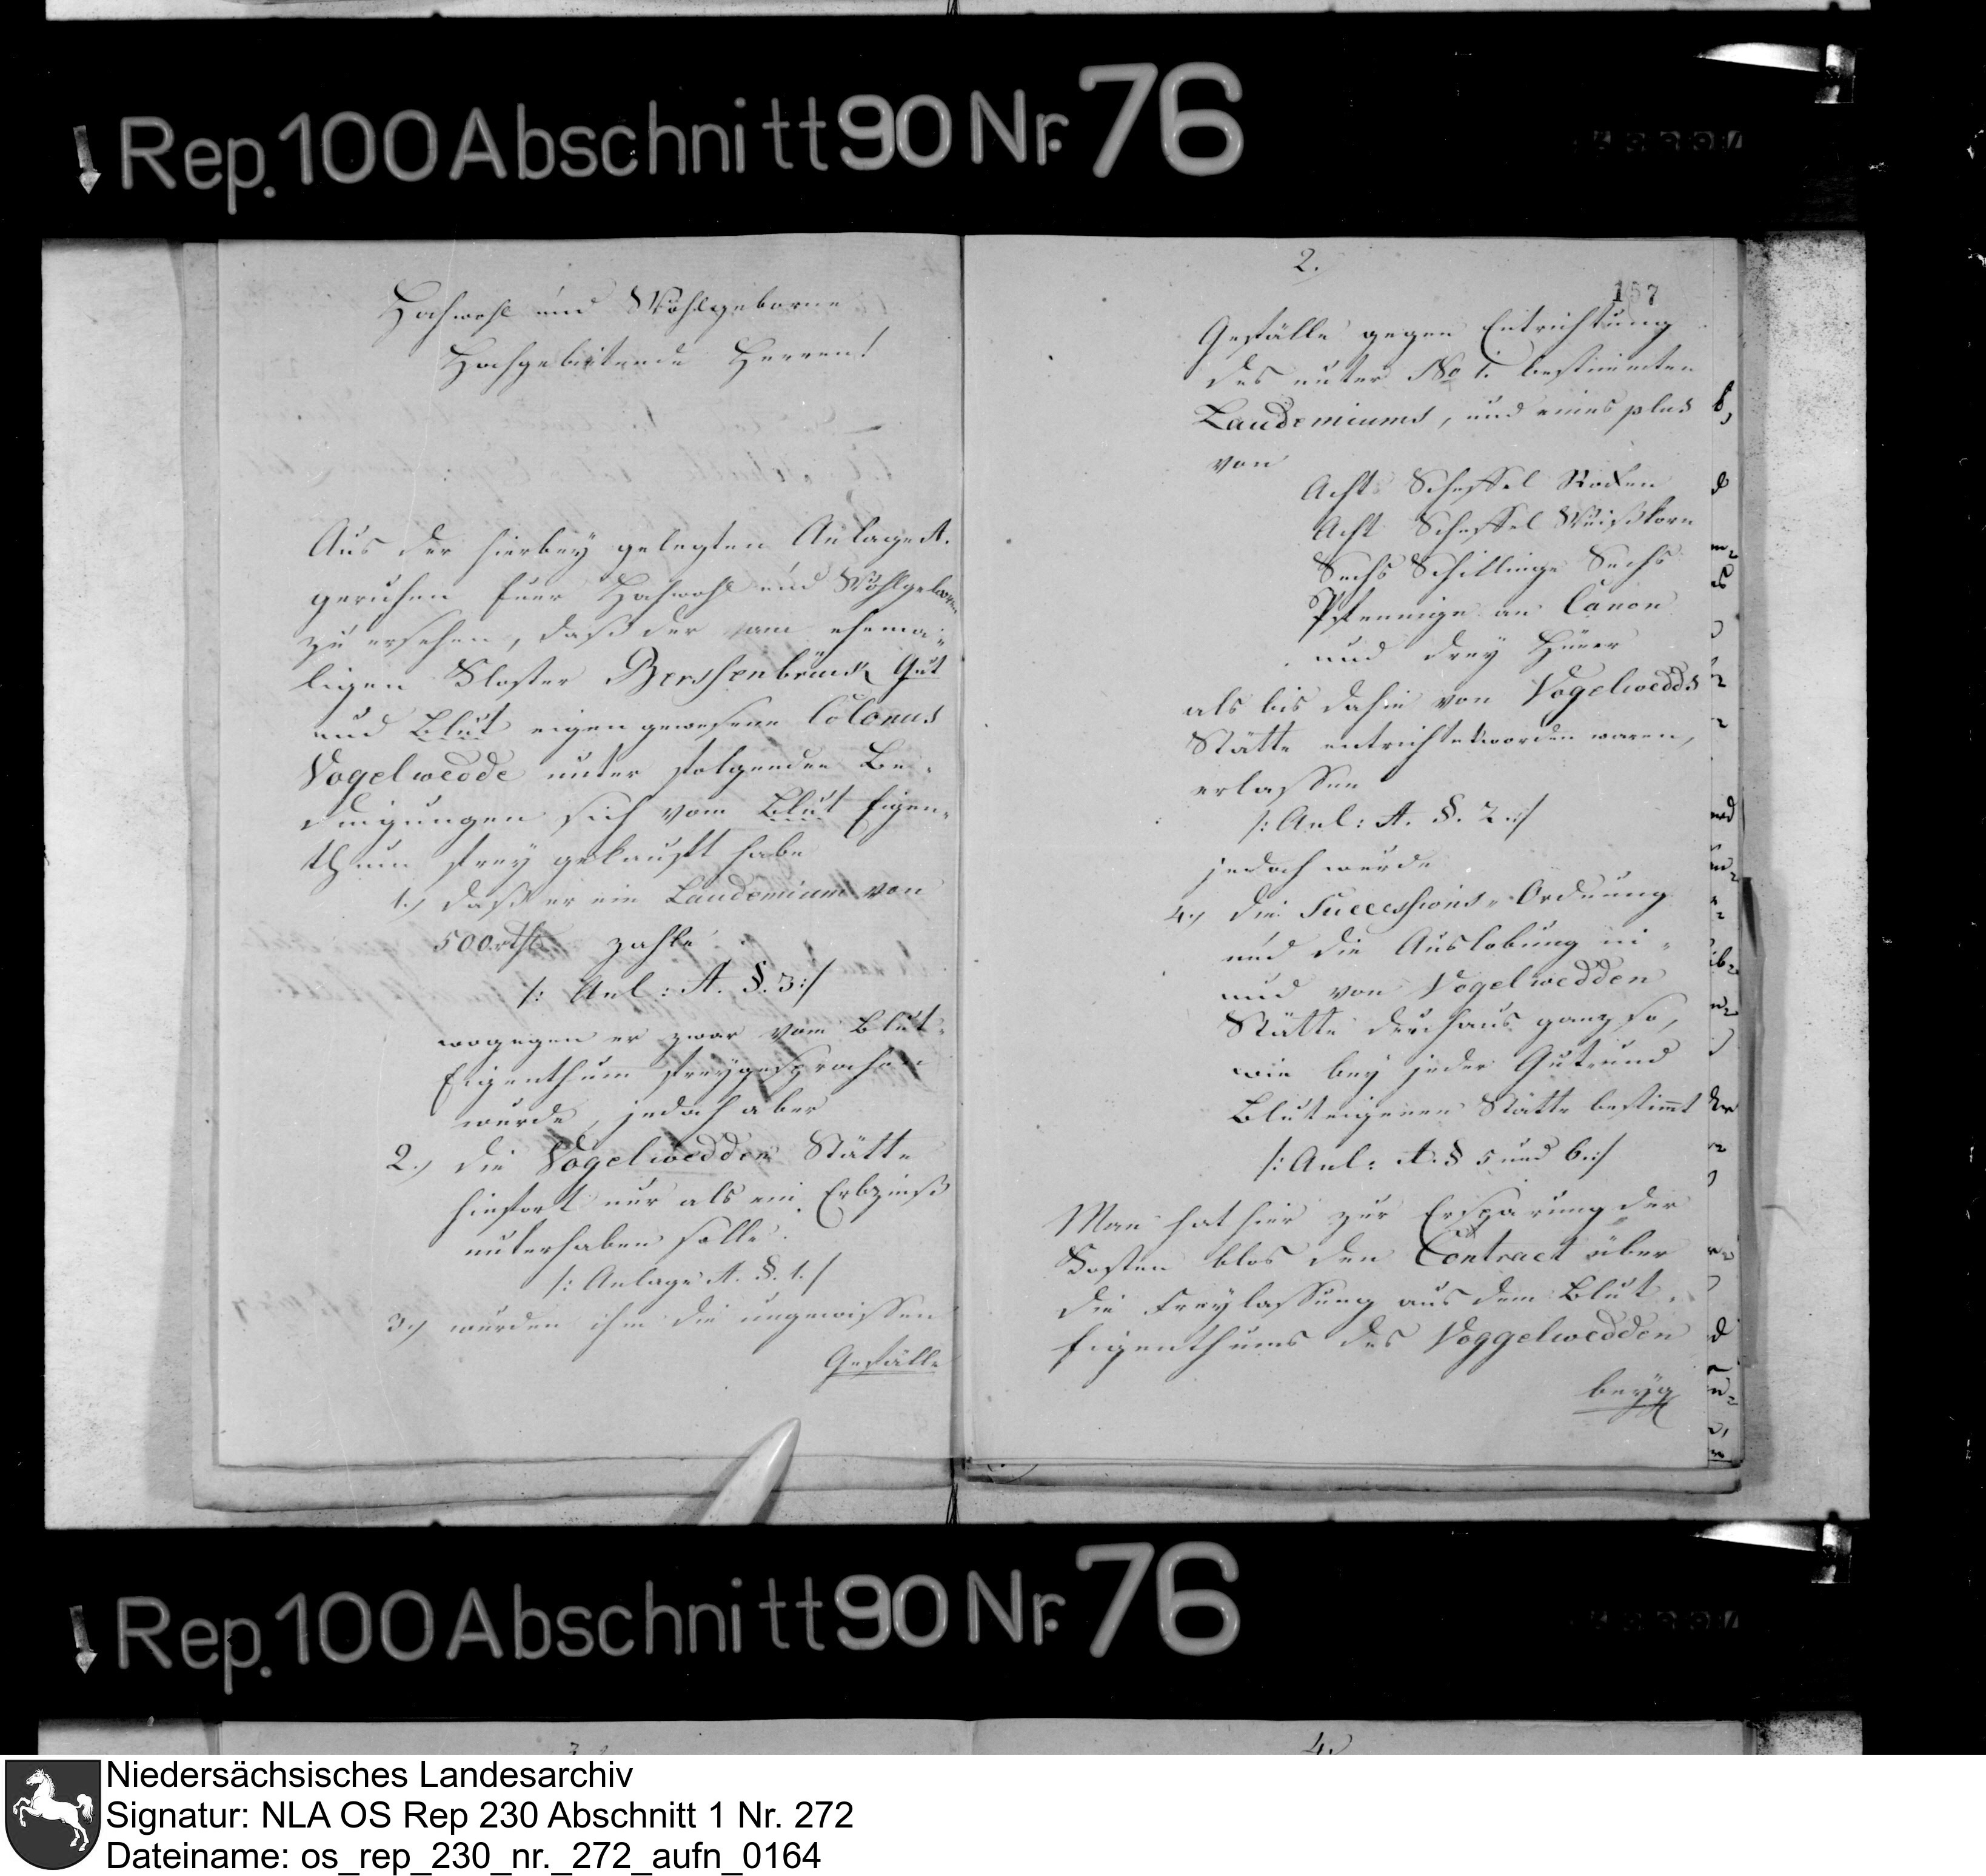 Rep. 100 Abschnitt 90 Nr. 76
Hochwohl und Wohlgeborne
Hochgebietende Herren!
Aus der hierbey gelegten Anlage A.
geruhen Euer Hochwohl und Wohlgeboren
zu ersehen, daß der dem ehema-
ligen Kloster Berssenbrück Gut
und Blut eigen gewesene Colonus
Vogelwedde unter folgenden Be-
dingungen sich vom Blut Eigen-
thum frey gekauft habe
1.) daß er ein Laudemium von
500 rth zahle
/: Anl: A. §. 3 :/
wogegen er zwar vom Blut-
Eigenthum freygesprochen
wurde, jedoch aber
2.) die Vogelwedden Stätte
hinfort nur als ein Erbzinß
unterhaben solle.
/: Anlage A. §. 1. /
3.) wurden ihm die ungewissen
Gefälle
2.
157
Gefälle gegen Entrichtung
des unter No 1. bestimmten
Laudemiums, und eines plus
von
Acht Scheffel Rocken
Acht Scheffel Weißkorn
Sechs Schillinge Sechs
Pfennige an Canon
und drey Hüner
als bis dahin von Vogelwedds
Stätte entrichtet worden waren,
erlassen
/: Anl: A. §. 2 :/
jedoch wurde
4.) die Successions-Ordnung
und die Auslobung in-
und von Vogelwedden
Stätte durchaus ganz so,
wie bey jeder Gut und
Bluteigenen Stätte bestimt
/: Anl: A. § 5 und 6. :/
Man hat hier zur Ersparung der
Kosten blos den Contract über
die Freylassung aus dem Blut-
Eigenthums des Voggelwedden
beyg
Rep. 100 Abschnitt 90 Nr. 76
3.
4.
Niedersächsisches Landesarchiv
Signatur: NLA OS Rep 230 Abschnitt 1 Nr. 272
Dateiname: os_rep_230_nr._272_aufn_0164